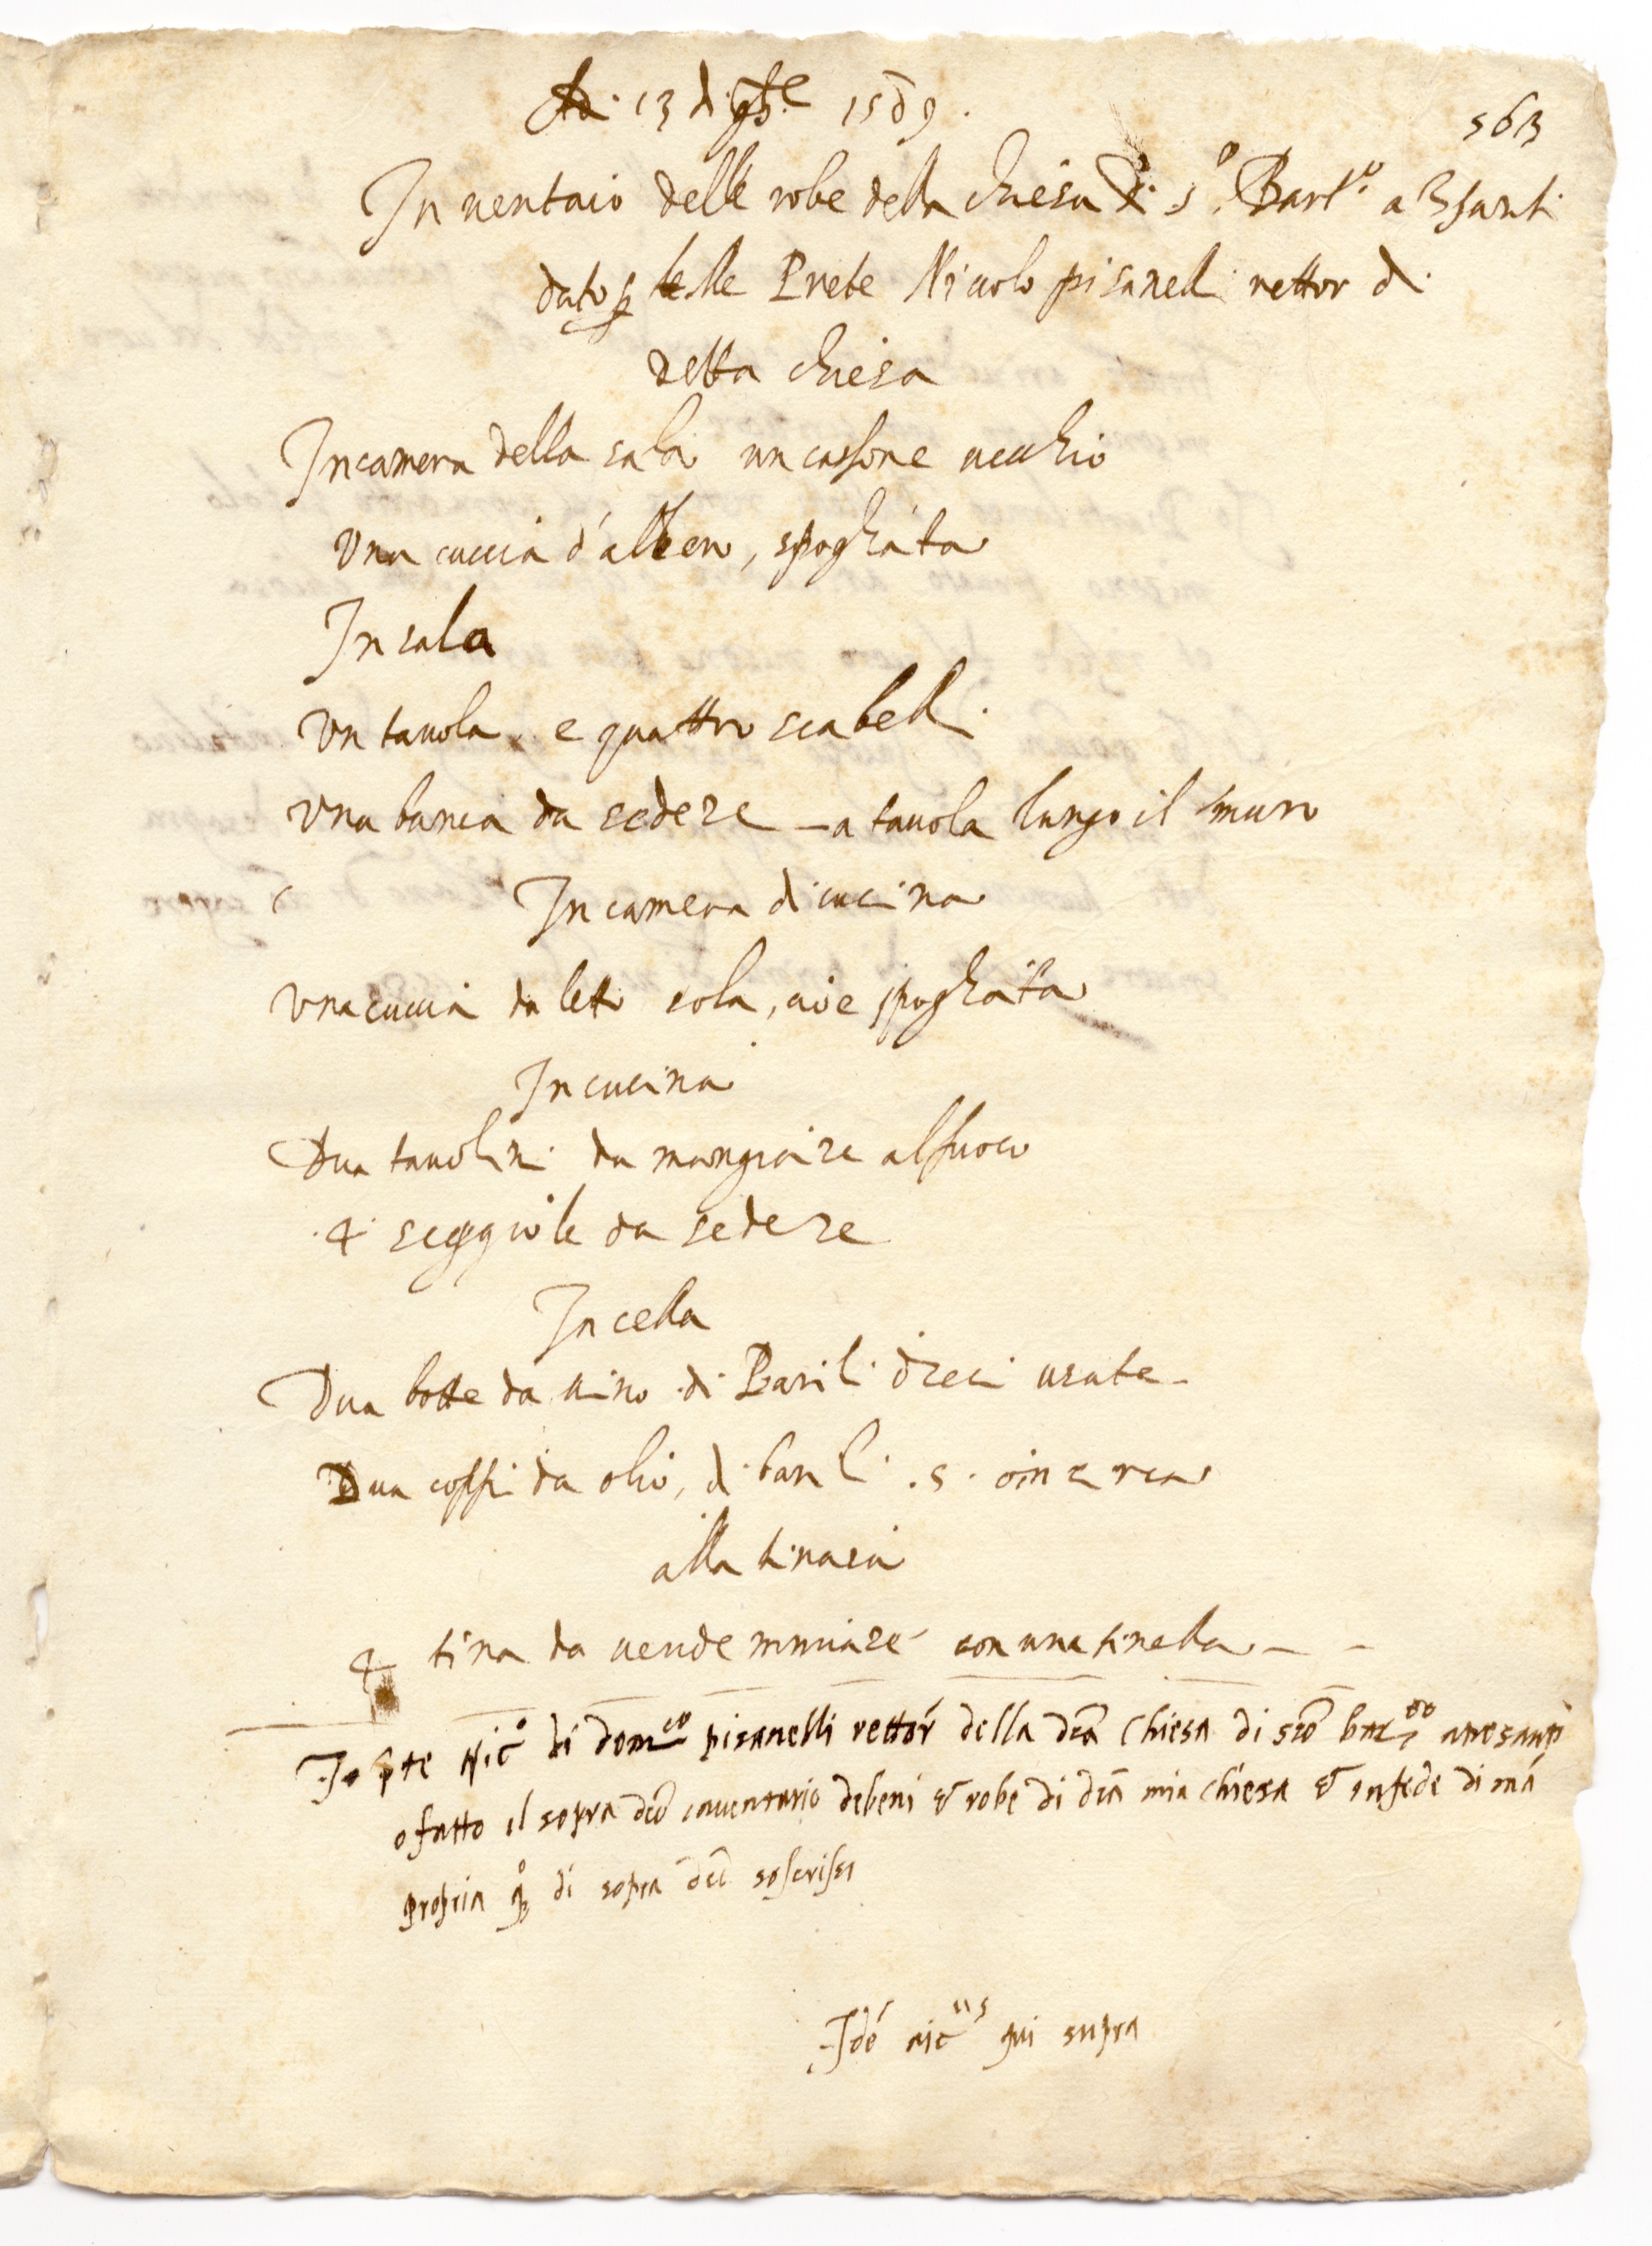 Adi 13 di 9bre 1589.
563
Inuentaio delle robe della chiesa di s.o Bart.o a 3 santi
dato p le Me Prete Nicolo pisanelli rettor di
detta chiesa
In camera della sala un cassone uechio
Una cuccia d'albero, spogliata
In sala
Un tauola e quattro scabelli
Una banca da sedere – a tauola lungo il muro
In camera di cucina
Una cuccia da letto sola, cioe spogliata
In cucina
Dua tauolini da mangiare al fuoco
.4. seggiole da sedere
In cella
Dua botte da uino di Barili dieci usate –
Dua coppi da olio, di barili .5. oincirca
alla tinaia
4 tina da uendemmiare con una tinella – –
Io pte Nic.o di dom.co pisanelli rettor della dca Chiesa di sto bar.eo atresanti
o fatto il sopra dco inuentario debeni & robe di dca mia chiesa & infede di ma
propria q.o di sopra dci soscrissi
Ide nic.us qui supra